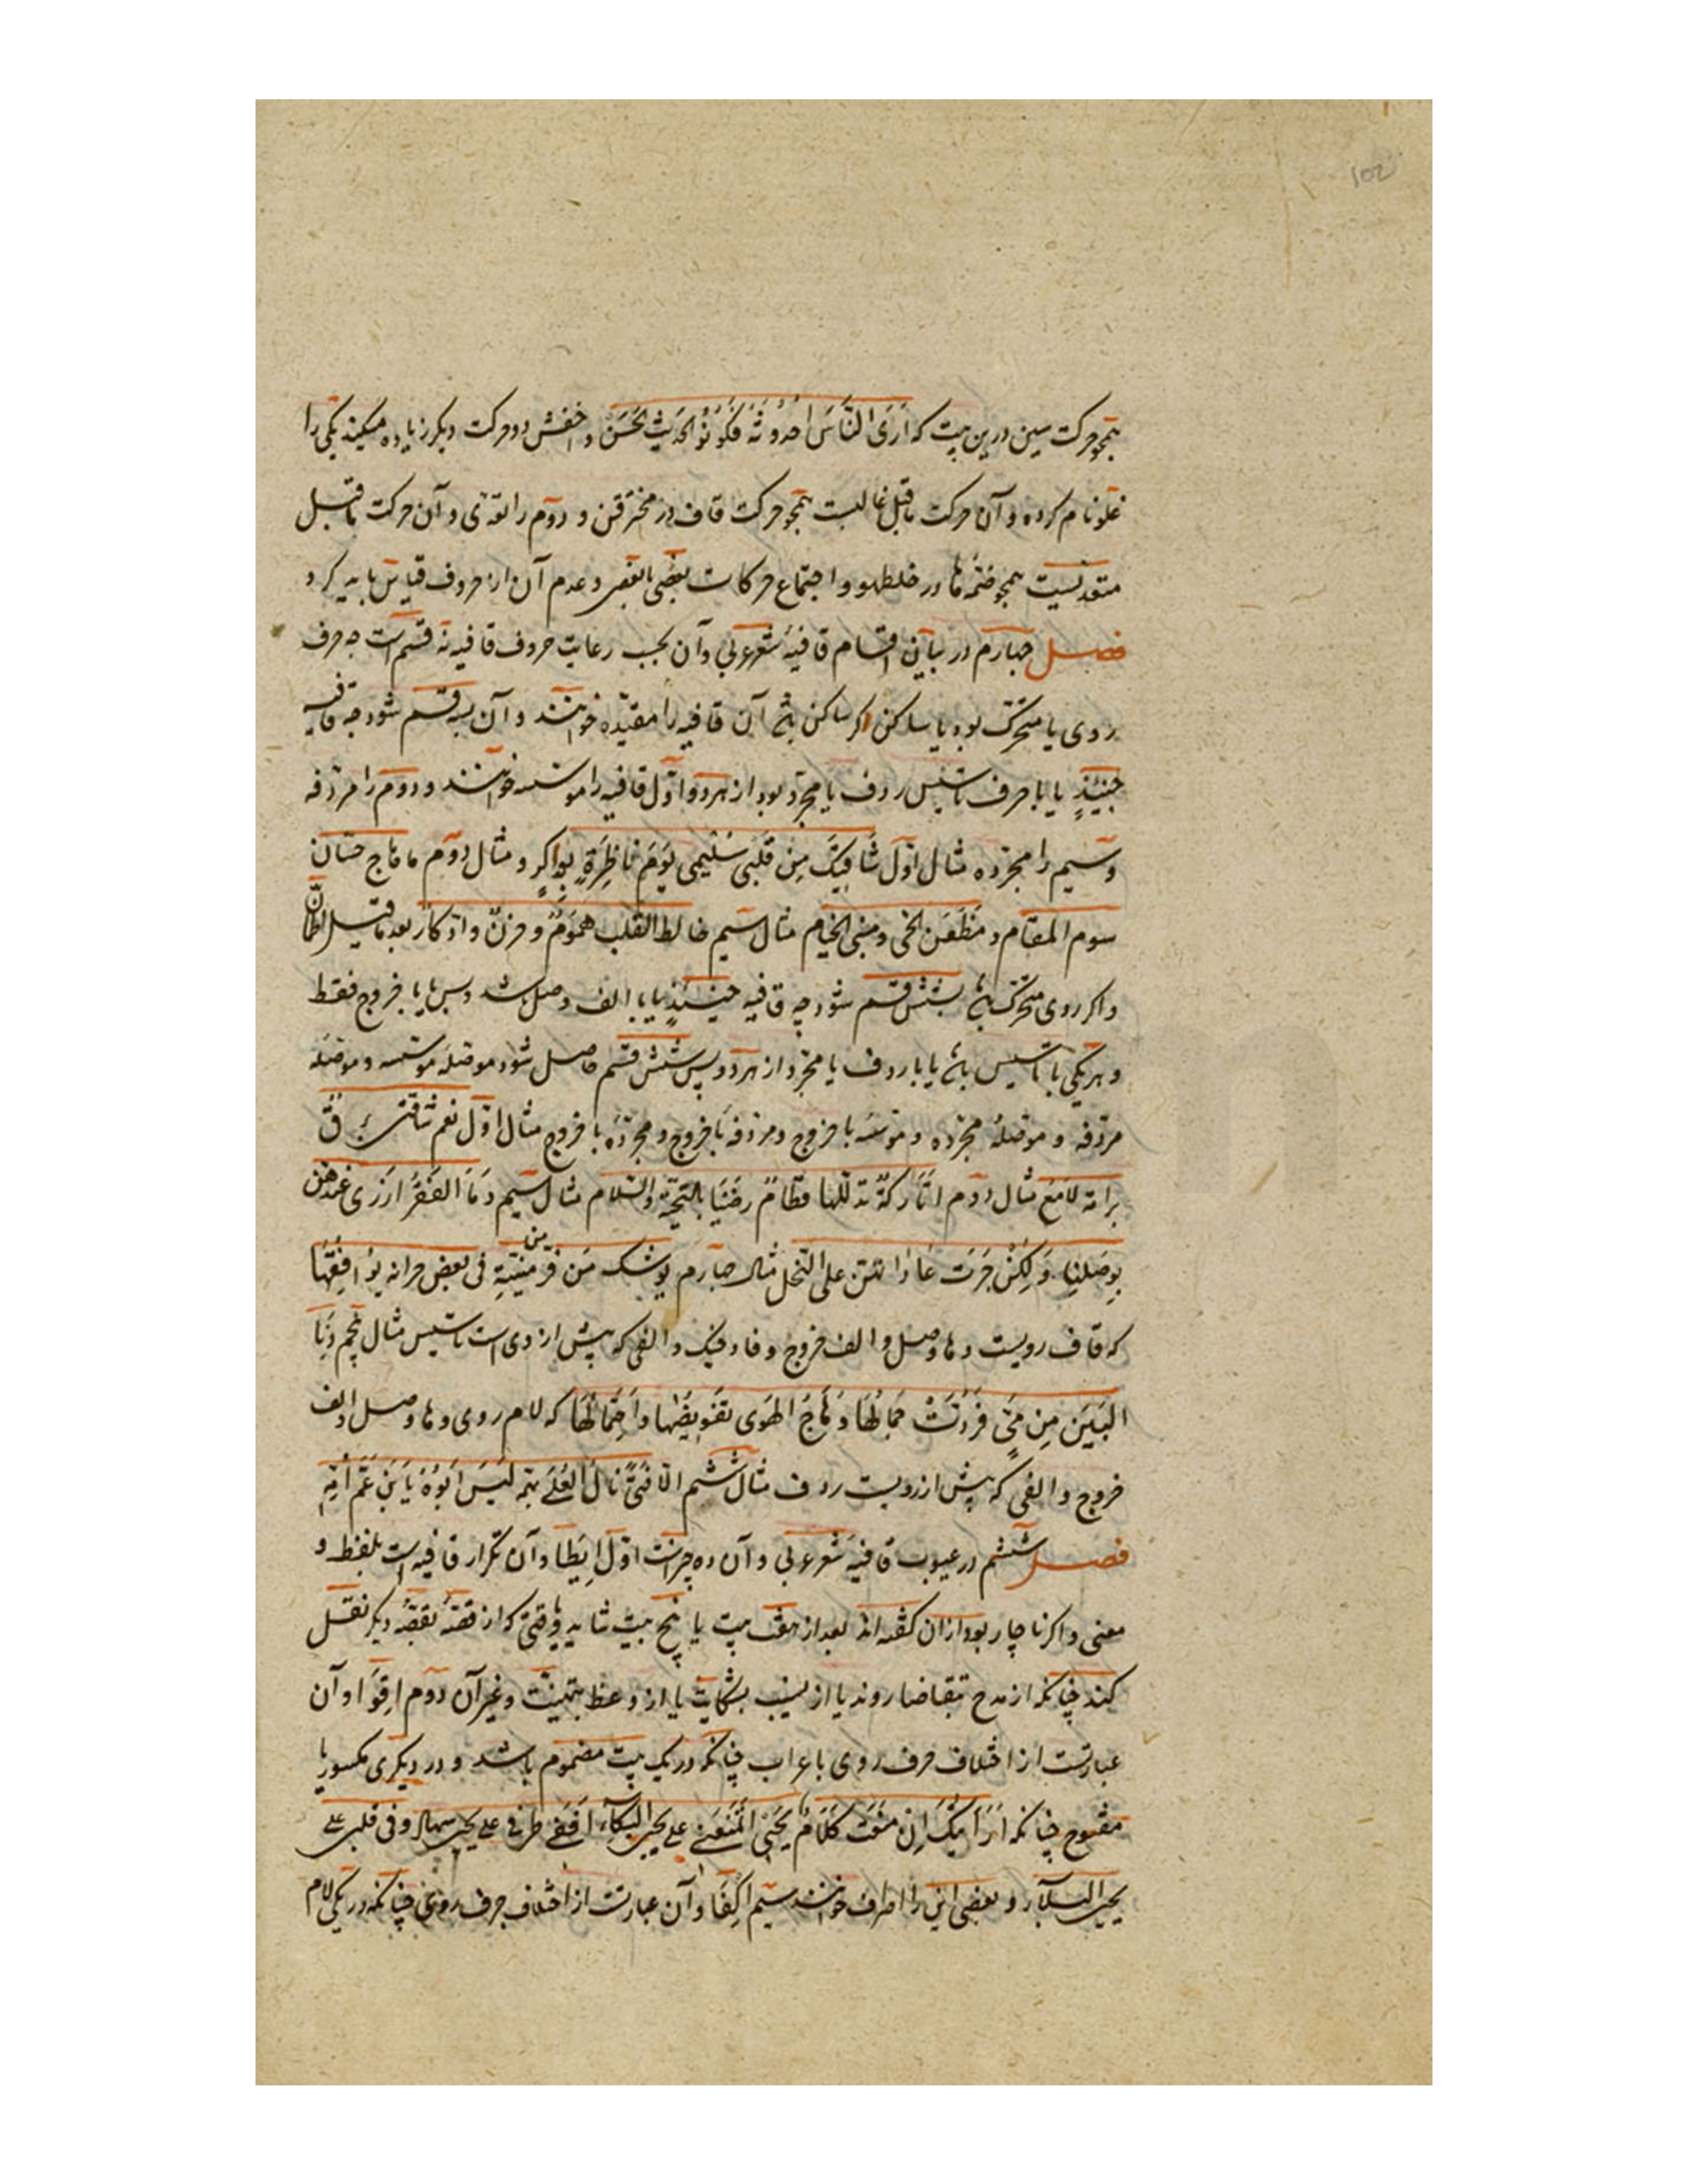 102
همچو حرکت سین درین بیت که اَرَی النَّاسَ اُحدُوثَهً فَکُونُوا الحَدِیثَ الحَسَن و اخفش دو حرکت دیگر زیاده میکند یکی را
غلو نام کرده و آن حرکت ماقبل غالیست همچو حرکت قاف در مخترقن و دوم را تعدّی و آن حرکت ماقبل
متعدیست همچو ضمّه ها در خلطهو و اجتماع حرکات بعضی با بعض و عدم آن از حروف قیاس باید کرد
فصل چهارم در بیان اقسام قافیۀ شعر عربی و آن بحسب رعایت حروف قافیه نه قسم است چه حرف
روی یا متحرک بود یا ساکن اگر ساکن باشد آن قافیه را مقیّده خوانند و آن بسه قسم شود چه قافیه
حینئذٍ یا با حرف تاسیس ردف یا مجرّد بود از هر دو اوّل قافیه را موسسه خوانند و دوم را مردفه
و سیم را مجرّده مثال اوّل شَاقَتِکَ مِن قَلبی سُلیمی یَومَ نَاظِرَةٍ بواکِر و مثال دوم ماهاج حسان
سوم المقام و مَظعَن الحی و مبنی الخیام مثال سیم خالط القلب هُمومٌ و حزنٌ و ادّکار بعد ماقیل اطمأنّ
و اگر روی متحرک باشد بشش قسم شود چه قافیه حینئذٍ یا با الف وصل باشد و بس یا با خروج فقط
و هر یکی با تاسیس باشد یا با ردف یا مجرّد از هر دو پس شش قسم حاصل شود موصله موسسه و موصله
مردفه و موصلۀ مجرّده و موسسه با خروج و مردفه با خروج و مجرّده با خروج مثال اوّل نعم شاقتک برق
برامة لامع مثال دوم اتارکةً تدللها قطامِ رضینا بالتحیّة و السّلام مثال سیم وَمَا الفَقرُ ازری عندهن
بِوَصلِنا وَ لکِن جَرَت عاداتهنّ علی النخل مثال چهارم یوشک مَن فرّ من منیّتِهِ فی بعض غراته یُوافِقُهَا
که قاف رویست و ها وصل و الف خروج و فا دخیل و الفی که پیش از وی است تاسیس مثال پنجم دَنَا
البَین مِن مَیٍّ فَرُدَّت جِمَالُهَا وَ هَاجَ الهَوی تقویضُها وَ احتِمَالُهَا که لام روی و ها وصل و الف
خروج و الفی که پیش از رویست ردف مثال ششم الا فتیً نال العُلی بهمّه لَیسَ اَبُوهُ یا بنِ عَمِّ اُمِّه
فصل ششم در عیوب قافیۀ شعر عربی و آن ده چیزست اوّل اِیطا و آن تکرار قافیه است بلفظ و
معنی و اگر ناچار بود ازان گفته اند بعد از هفت بیت یا پنج بیت شاید و وقتی که از قصّۀ بقصّۀ دیگر نقل
کند چنانکه از مدح بتقاضا روند یا از نسیب بشکایت یا از وعظ بتهنیت و غیر آن دوم اِقوَا و آن
عبارتست از اختلاف حرف روی باعراب چنانکه در یک بیت مضموم باشد و در دیگری مکسور یا
مفتوح چنانکه اَرَأیتَکَ اِن مَنَعتَ کَلَامَ یَحیی اَتَمنَعُنی علی یحیی البُکاءَ فَفی طرفی علی یحیی سهاد و فی قلبی علی
یحیی البلاءُ و بعضی این را اصراف خوانند سیم اِکفَا و آن عبارتست از اختلاف حرف روی چنانکه در یکی لام